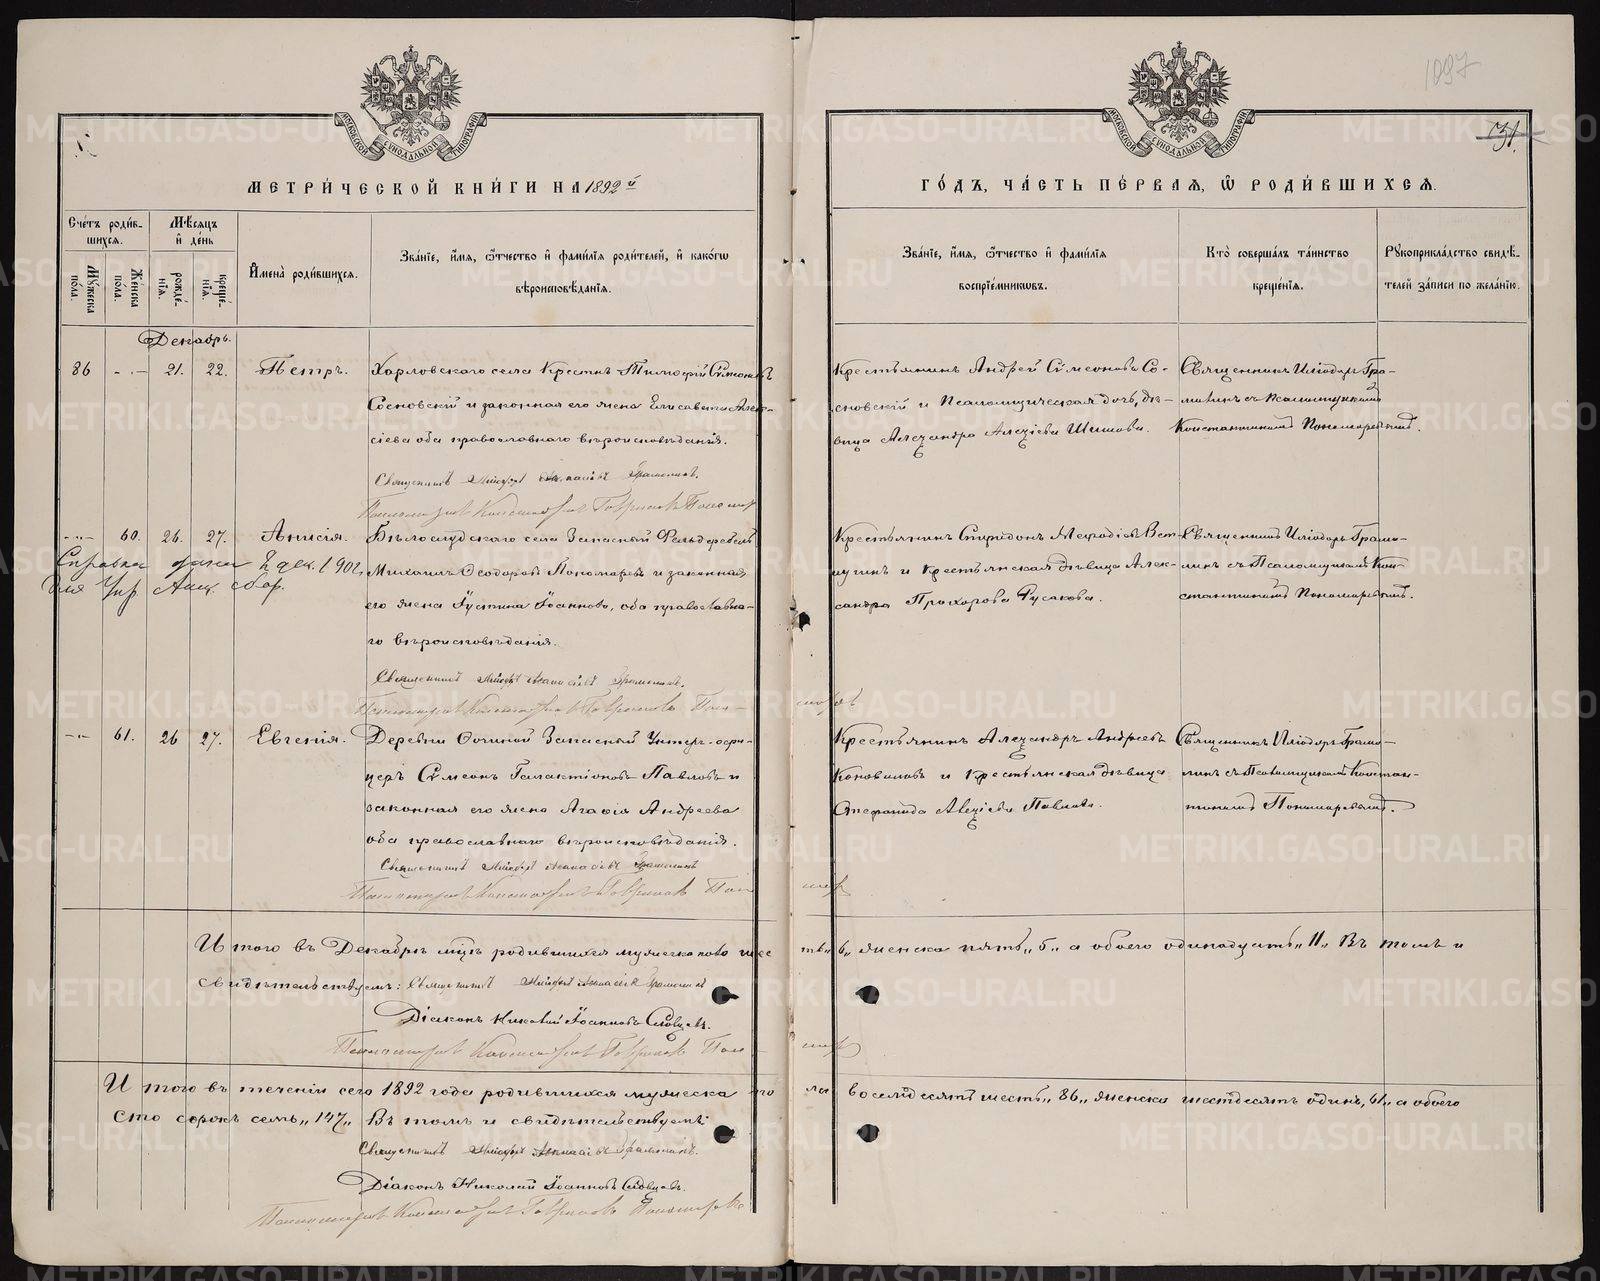 1097
131.
МОСКОВСКОЙ СѴНОДАЛЬНОЙ ТИПОГРАФІИ
МОСКОВСКОЙ СѴНОДАЛЬНОЙ ТИПОГРАФІИ
МЕТРИ́ЧЕСКОЙ КНИ́ГИ НА 1892 й
ГО́ДЪ, ЧА́СТЬ ПЕ́РВАЯ, Ѿ РОДИ́ВШИХСЯ.
Счетъ родившихся.
Мужеска пола.
Женска пола.
Мѣсяцъ и день
рожденія.
крещенія.
Имена родившихся.
Званіе, имя, отчество и фамилія родителей, и какогѡ вѣроисповѣданія.
Званіе, имя, отчество и фамилія воспріемниковъ.
Кто совершалъ таинство крещенія.
Рукоприкладство свидѣтелей записи по желанію.
Декабрь.
86 - - 21. 22. Петръ.
Харловскаго села Крестнъ Тимофей Сѵмеоновъ
Сосновскій и законная его жена Елисавета Алек-
сіева оба православнаго вѣроисповѣданія.
Священникъ Иліодоръ Аѳанасіевъ Грамолинъ.
Псаломщикъ Константинъ Гавриловъ Пономар
Крестьянинъ Андрей Сѵмеоновъ Со-
сновскій и Псаломщическая дочь, дѣ-
вица Александра Алексіева Шишова.
Священникъ Иліодоръ Гра-
молинъ съ Псаломщикомъ
Константиномъ Пономаревымъ.
- - 60. 26. 27. Анисія.
Справка дана 2 дек. 1902
Бѣлослудскаго села Запасный Фельдфебель
Михаилъ Ѳеодоровъ Пономаревъ и законная
его жена Іустина Іоаннова, оба православна-
го вѣроисповѣданія.
Священникъ Иліодоръ Аѳанасіевъ Грамолинъ.
Псаломщикъ Константинъ Гавриловъ Поно-
маревъ
Крестьянинъ Спиридонъ Меѳодіевъ Вет-
лугинъ и крестьянская дѣвица Алек-
сандра Прохорова Русакова.
Священникъ Иліодоръ Грамо-
линъ съ Псаломщикомъ Кон-
стантиномъ Пономаревымъ.
- - 61. 26 27. Евгенія.
Деревни Запасный Унтеръ-офи-
церъ Сѵмеонъ Галактіоновъ Павловъ и
законная его жена Агаѳія Андреева
оба православнаго вѣроисповѣданія.
Священникъ Иліодоръ Аѳанасіевъ Грамолинъ
Псаломщикъ Константинъ Гавриловъ Поно
Крестьянинъ Александръ Андреевъ
Коноваловъ и крестьянская дѣвица
Стефанида Алексіева Павлова.
Священникъ Иліодоръ Грамо-
линъ съ Псаломщикомъ Констан-
тиномъ Пономаревымъ.
Итого въ Декабрѣ мцѣ родившихся мужеска пола шес
ть „6„ женска пять „5„ а обоего одинадцать „11„ Въ томъ и
свидѣтельствуемъ: Священникъ Иліодоръ Аѳанасіевъ Грамолинъ
Діаконъ Николай Іоанновъ Словцовъ.
Псаломщикъ Константинъ Гавриловъ Поно-
Итого въ теченіи сего 1892 года родившихся мужеска по
ла восемдесятъ шесть „86„ женска шестдесятъ одинъ, 61„ а обоего
сто сорокъ семь „147„ Въ томъ и свидѣтельствуемъ
Священникъ Иліодоръ Аѳанасіевъ Грамолинъ.
Діаконъ Николай Іоанновъ Словцовъ.
Псаломщикъ Константинъ Гавриловъ Пономаревъ
METRIKI.GASO-URAL.RU